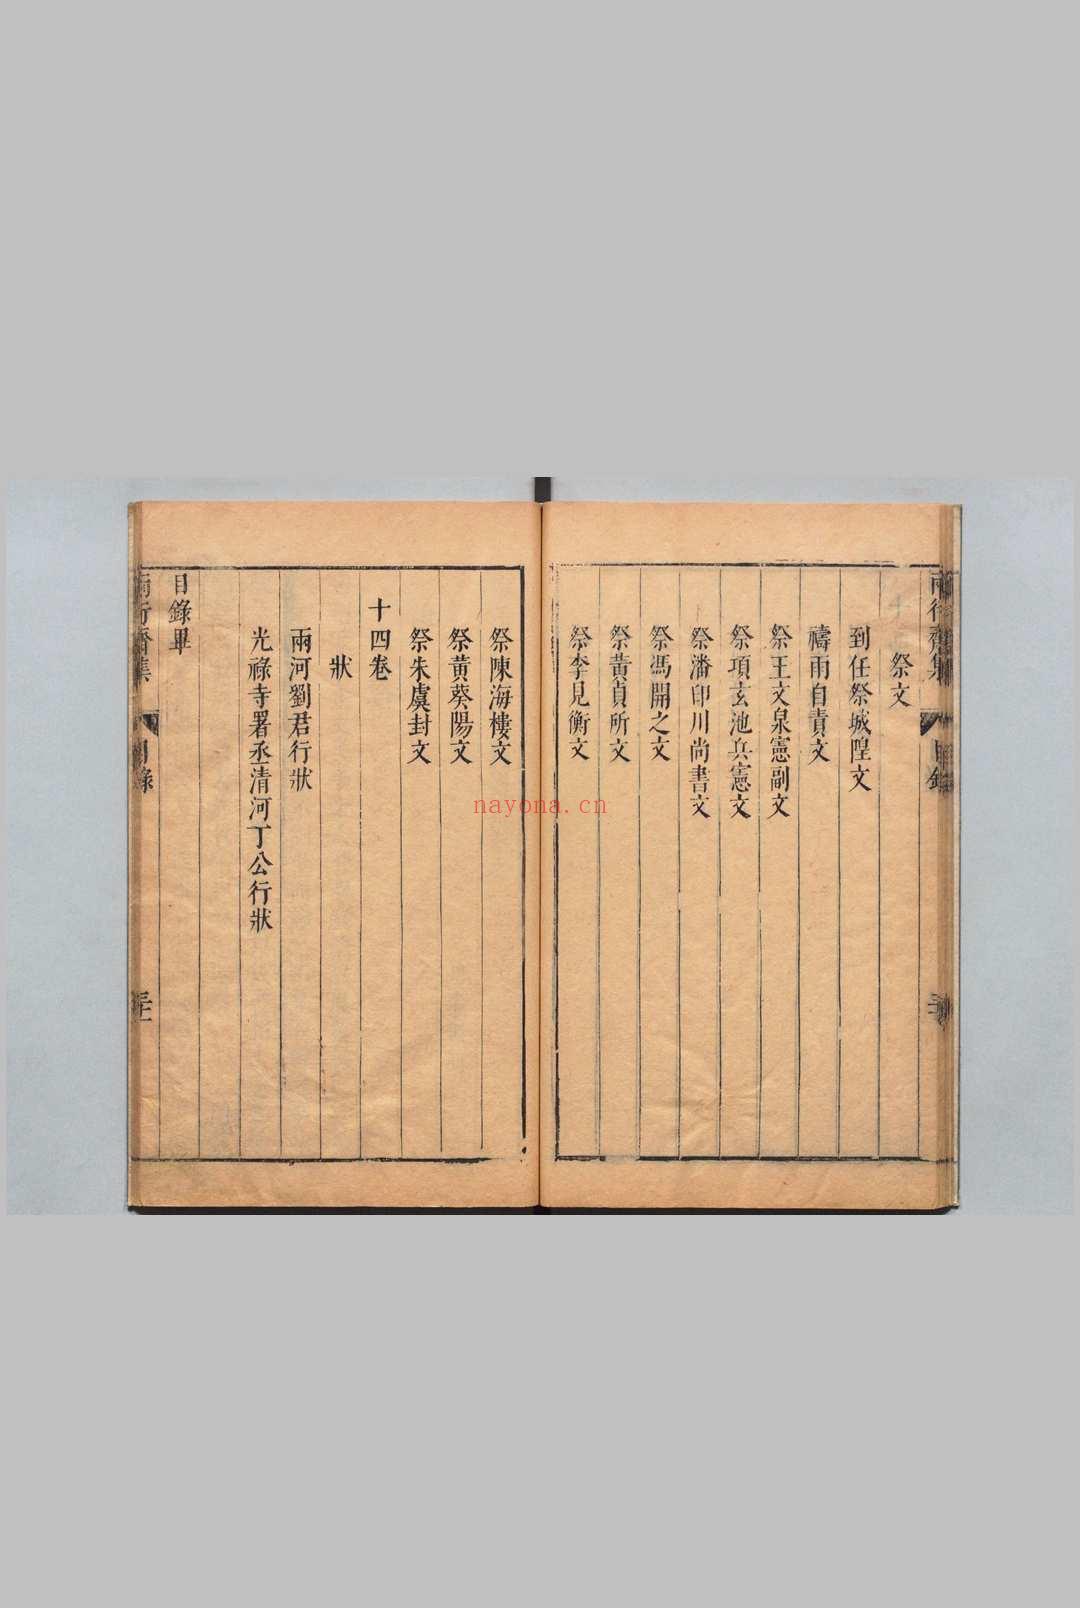 兩行齋集
目錄
祭文
到任祭城隍文
禱雨自責文
祭王文泉憲副文
祭項玄池兵憲文
祭潘印川尚書文
祭馮開之文
祭黃貞所文
祭李見衡文
祭陳海樓文
祭黃葵陽文
祭朱虞封文
十四卷
狀
兩河劉君行狀
光祿寺署丞清河丁公行狀
目錄畢
兩行齋集
目錄
nayona.cn